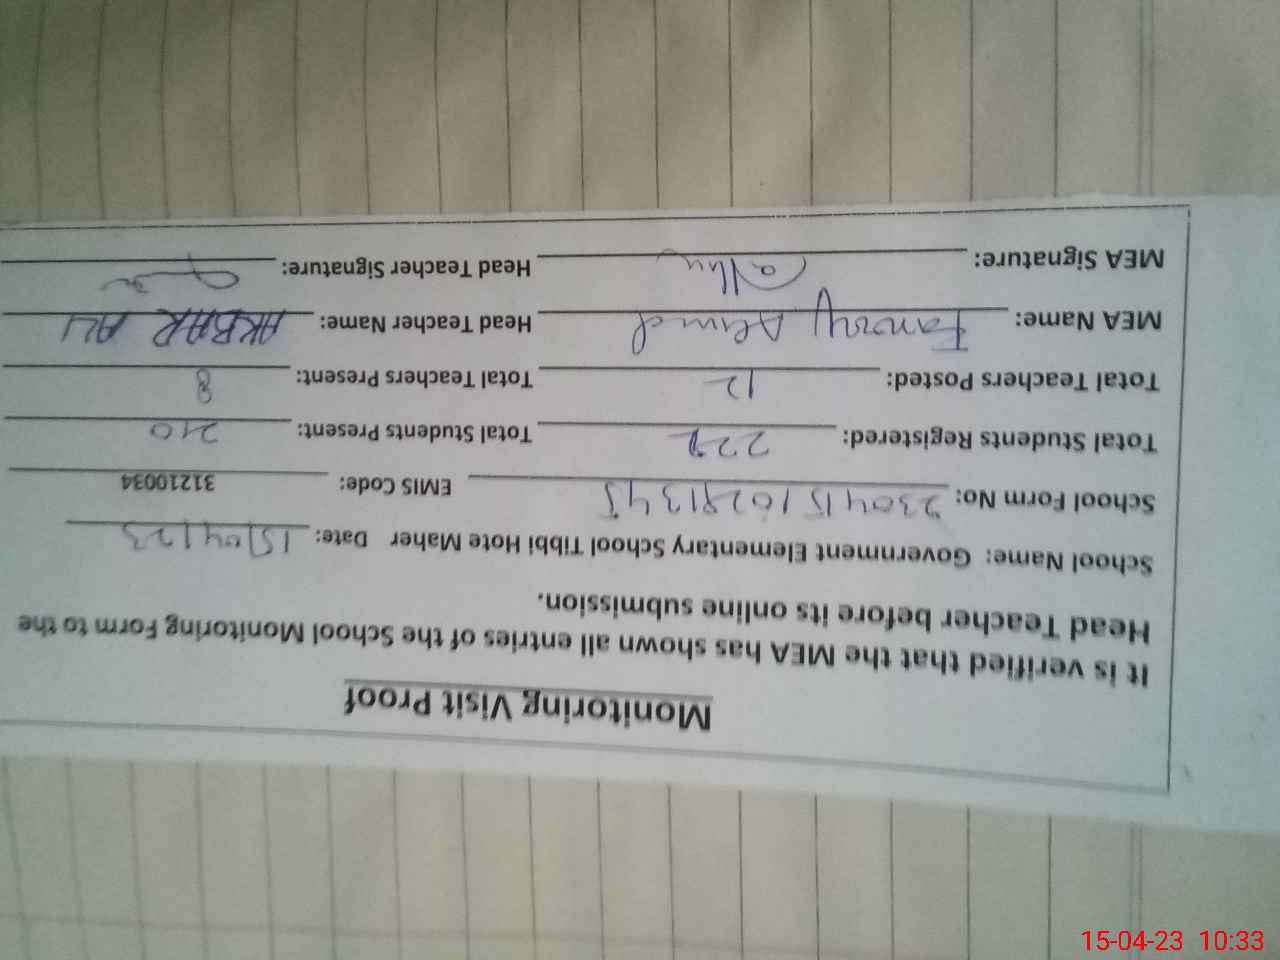 Monitoring Visit Proof
It is verified that the MEA has shown all entries of the School Monitoring Form to the
Head Teacher before its online submission.
School Name: Government Elementary School Tibbi Hote Maher Date: 15/04/23
School Form No: EMIS Code: 31210034
Total Students Registered: Total Students Present: 210
Total Teachers Posted: 12 Total Teachers Present: 8
MEA Name: Ahmed Head Teacher Name: AKBAR ALI
MEA Signature: Head Teacher Signature:
15-04-23 10:33